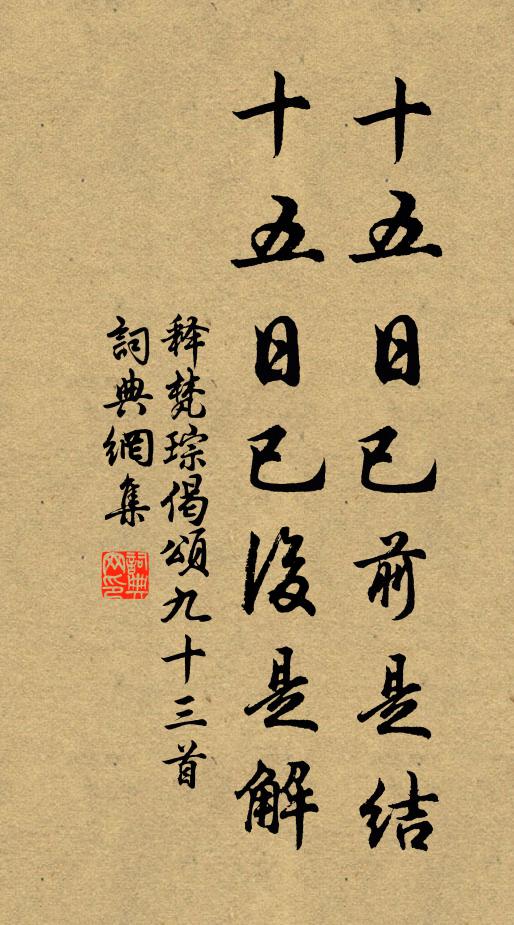 十五日已前是結
十五日已後是解
释梵琮偈頌九十三首
詞典網集
詞典网印